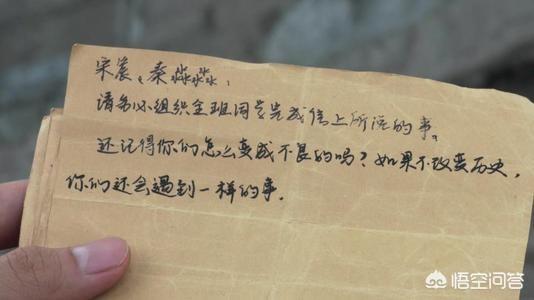 宋晨、秦淼淼，
请务必组织全班同学完成信上所说的事。
还记得你们怎么变成不良的吗？如果不改变历史，
你们还会遇到一样的事。
悟空问答